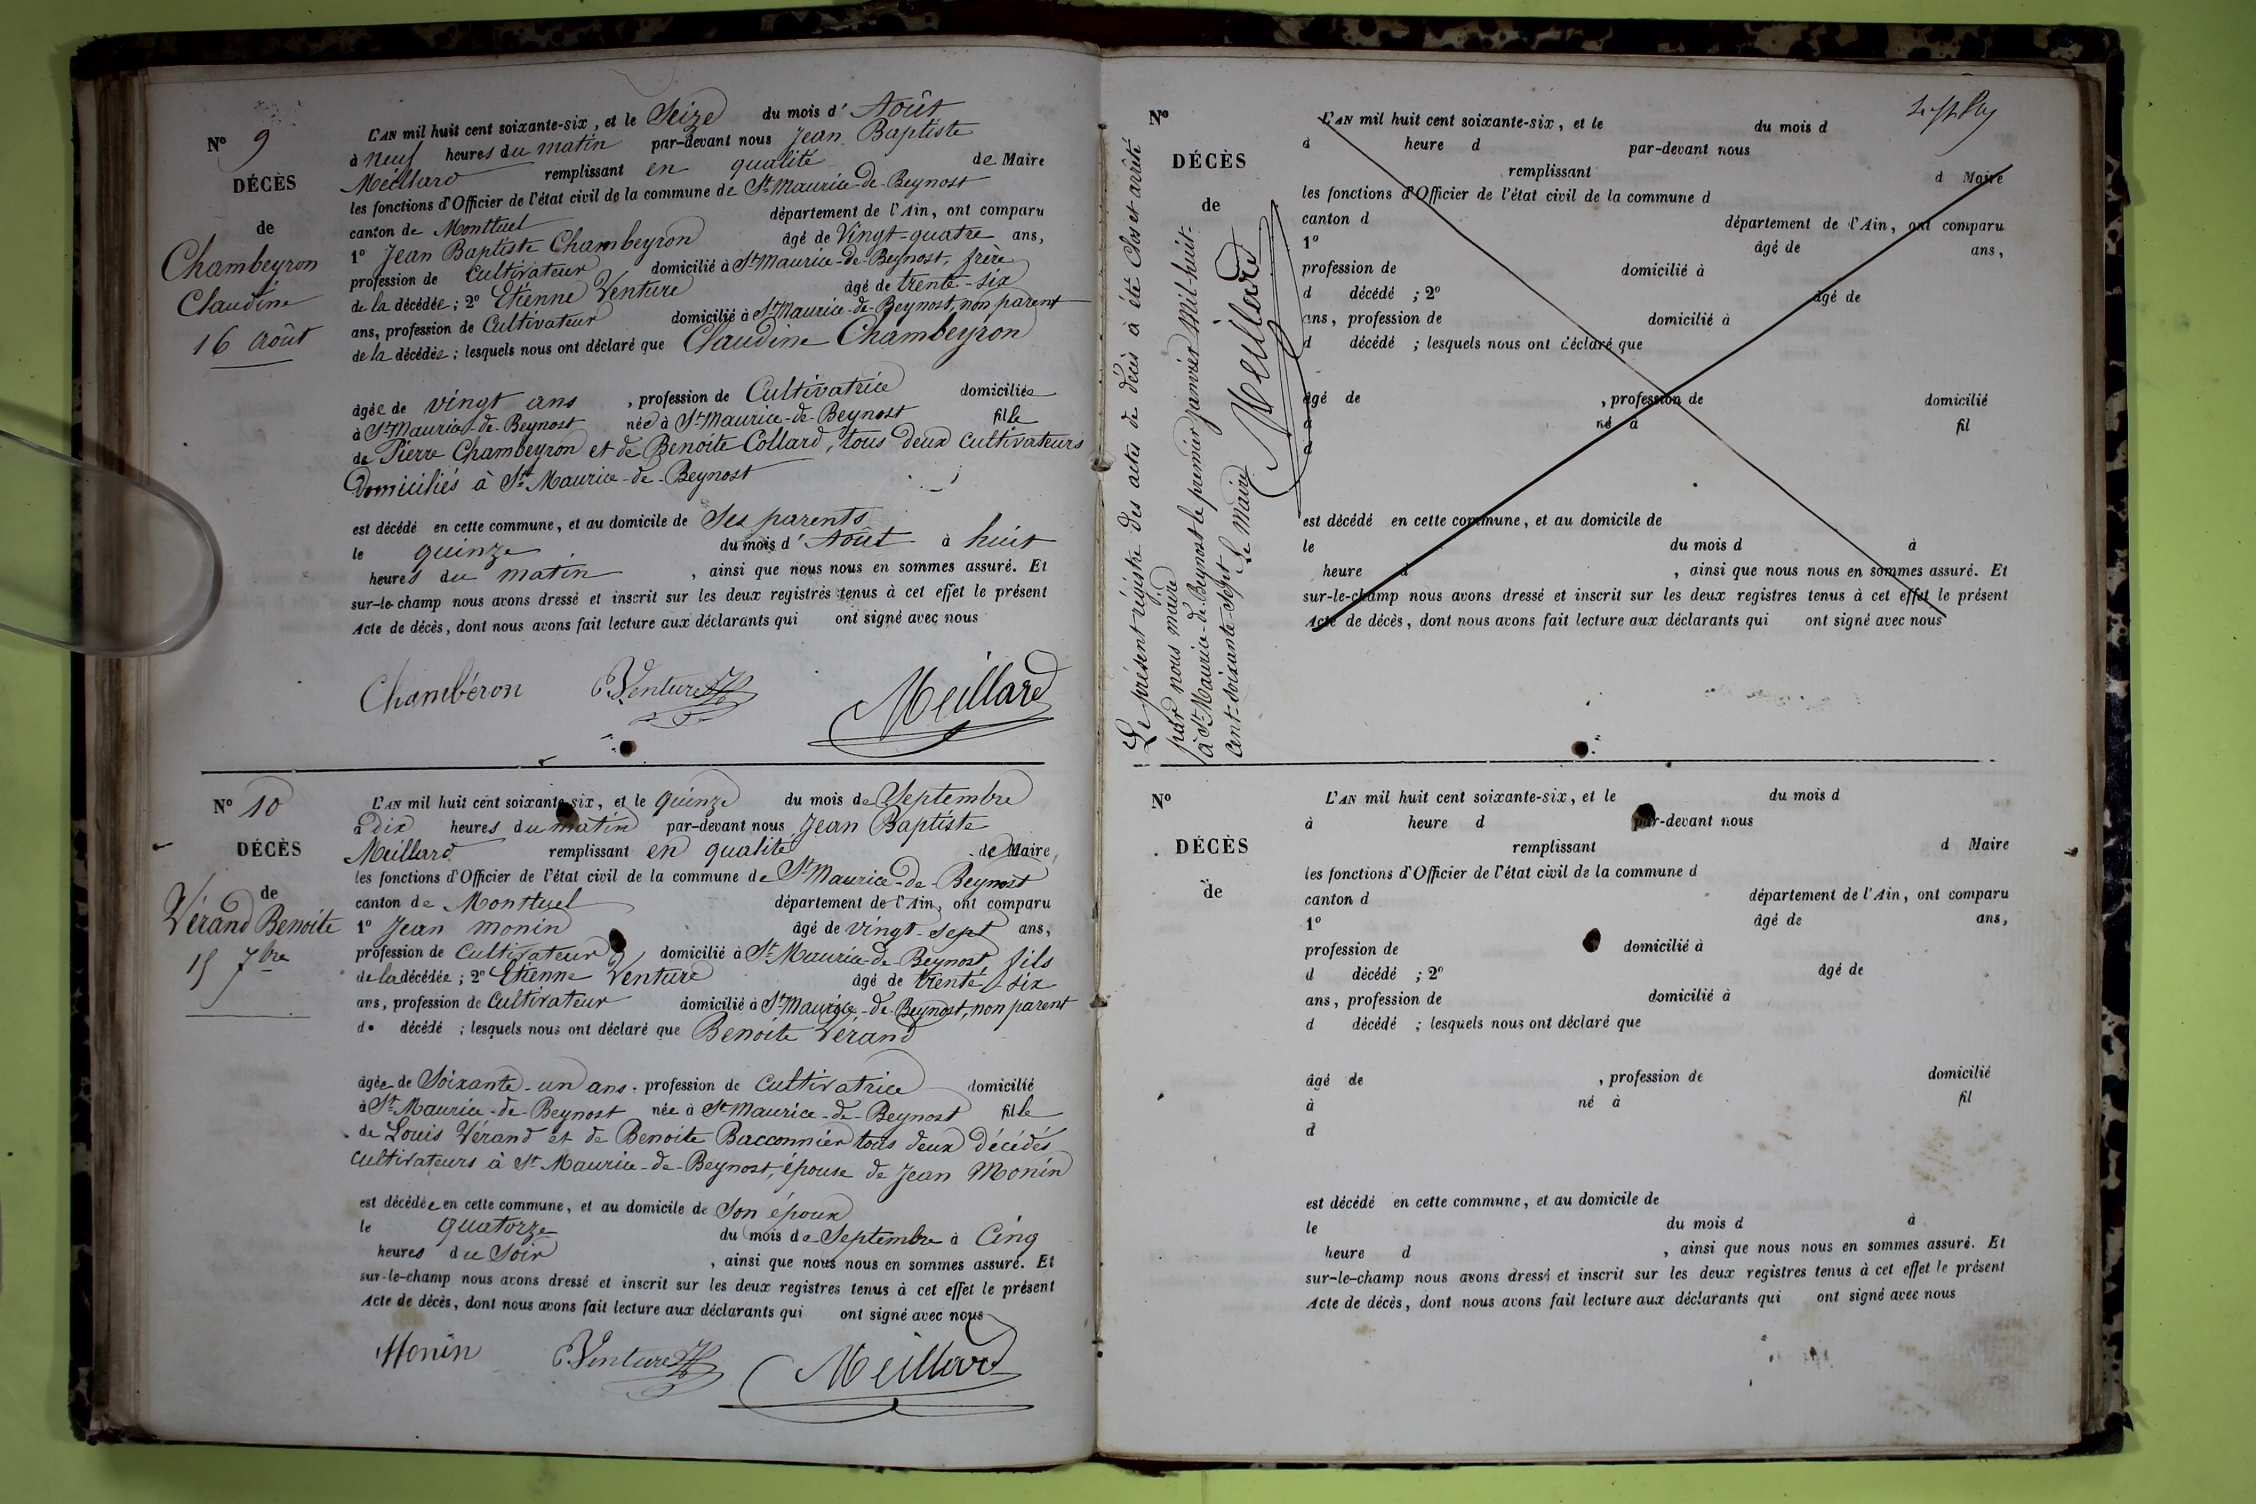 N° 9
DÉCÈS
de
Chambeyron
Claudine
16 Août
L'AN mil huit cent soixante-six, et le Seize du mois d' Août
à neuf heures du matin par-devant nous Jean Baptiste
Meillard remplissant en qualité de Maire
les fonctions d'Officier de l'état civil de la commune de St Maurice-de-Beynost
canton de Montluel département de l'Ain, ont comparu
1° Jean Baptiste Chambeyron âgé de Vingt-quatre ans,
profession de Cultivateur domicilié à St Maurice-de-Beynost, frère
de la décédée ; 2° Etienne Venture âgé de trente-six
ans, profession de Cultivateur domicilié à St Maurice-de-Beynost, non parent
de la décédée ; lesquels nous ont déclaré que Claudine Chambeyron
âgée de vingt ans , profession de Cultivatrice domiciliée
à St Maurice-de-Beynost née à St Maurice-de-Beynost fille
de Pierre Chambeyron et de Benoite Collard, tous deux cultivateurs
Domiciliés à St Maurice-de-Beynost
est décédé en cette commune, et au domicile de Ses parents
le quinze du mois d' Août à huit
heures du matin , ainsi que nous nous en sommes assuré. Et
sur-le-champ nous avons dressé et inscrit sur les deux registres tenus à cet effet le présent
Acte de décès, dont nous avons fait lecture aux déclarants qui ont signé avec nous
Chambéron E. Venture Meillard
N° 10
DÉCÈS
de
Vérand Benoite
15 7bre
L'AN mil huit cent soixante-six, et le quinze du mois de Septembre
à Dix heures du matin par-devant nous Jean Baptiste
Meillard remplissant en qualité de Maire,
les fonctions d'Officier de l'état civil de la commune de St Maurice-de-Beynost
canton de Montluel département de l'Ain, ont comparu
1° Jean monin âgé de vingt-sept ans,
profession de Cultivateur domicilié à St Maurice-de-Beynost, fils
de la décédée ; 2° Etienne Venture âgé de trente-six
ans, profession de Cultivateur domicilié à St Maurice-de-Beynost, non parent
d décédé ; lesquels nous ont déclaré que Benoite Vérand
âgée de Soixante-un ans, profession de Cultivatrice domicilié
à St Maurice-de-Beynost née à St Maurice-de-Beynost fille
de Louis Vérand et de Benoite Bacconnier tous deux décédés
cultivateurs à St Maurice-de-Beynost, épouse de Jean Monin
est décédée en cette commune, et au domicile de Son époux
le quatorze du mois de Septembre à Cinq
heures du Soir , ainsi que nous nous en sommes assuré. Et
sur-le-champ nous avons dressé et inscrit sur les deux registres tenus à cet effet le présent
Acte de décès, dont nous avons fait lecture aux déclarants qui ont signé avec nous
Monin E. Venture Meillard
Le présent régistre des actes de décès à été Clos et arrêté
par nous maire
à St Maurice-de-Beynost le premier janvier Mil-huit-
cent-soixante-sept Le Maire
Meillard
N°
DÉCÈS
de
L'AN mil huit cent soixante-six, et le du mois d
à heure d par-devant nous
remplissant d Maire
les fonctions d'Officier de l'état civil de la commune d
canton d département de l'Ain, ont comparu
1° âgé de ans,
profession de domicilié à
d décédé ; 2° âgé de
ans, profession de domicilié à
d décédé ; lesquels nous ont déclaré que
âgé de , profession de domicilié
à né à fil
d
est décédé en cette commune, et au domicile de
le du mois d à
heure d , ainsi que nous nous en sommes assuré. Et
sur-le-champ nous avons dressé et inscrit sur les deux registres tenus à cet effet le présent
Acte de décès, dont nous avons fait lecture aux déclarants qui ont signé avec nous
N°
DÉCÈS
de
L'AN mil huit cent soixante-six, et le du mois d
à heure d par-devant nous
remplissant d Maire
les fonctions d'Officier de l'état civil de la commune d
canton d département de l'Ain, ont comparu
1° âgé de ans,
profession de domicilié à
d décédé ; 2° âgé de
ans, profession de domicilié à
d décédé ; lesquels nous ont déclaré que
âgé de , profession de domicilié
à né à fil
d
est décédé en cette commune, et au domicile de
le du mois d à
heure d , ainsi que nous nous en sommes assuré. Et
sur-le-champ nous avons dressé et inscrit sur les deux registres tenus à cet effet le présent
Acte de décès, dont nous avons fait lecture aux déclarants qui ont signé avec nous